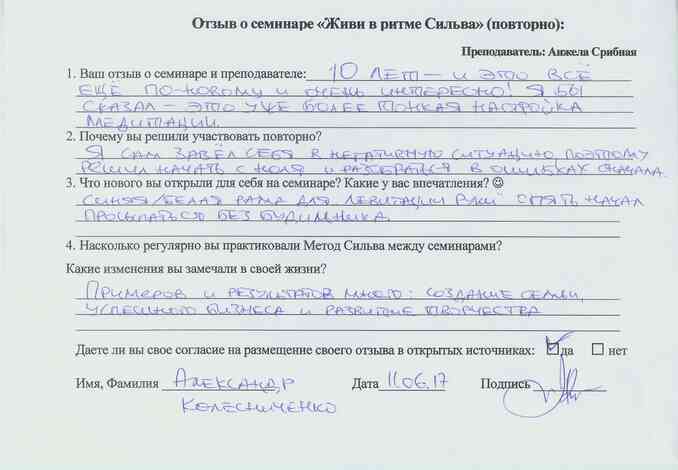 Отзыв о семинаре «Живи в ритме Сильва» (повторно):
Преподаватель: Анжела Срибная
1. Ваш отзыв о семинаре и преподавателе: 10 ЛЕТ – И ЭТО ВСЁ
ЕЩЁ ПО-НОВОМУ И ОЧЕНЬ ИНТЕРЕСНО! Я БЫ
СКАЗАЛ – ЭТО УЖЕ БОЛЕЕ ТОНКАЯ НАСТРОЙКА
МЕДИТАЦИИ.
2. Почему вы решили участвовать повторно?
Я САМ ЗАВЁЛ СЕБЯ В НЕГАТИВНУЮ СИТУАЦИЮ, ПОЭТОМУ
РЕШИЛ НАЧАТЬ С НОЛЯ И РАЗОБРАТЬСЯ В ОШИБКАХ СНАЧАЛА.
3. Что нового вы открыли для себя на семинаре? Какие у вас впечатления? ☺
СИНЯЯ/БЕЛАЯ РАМА ДЛЯ "ЛЕВИТАЦИИ РУКИ" ОПЯТЬ НАЧАЛ
ПРОСЫПАТЬСЯ БЕЗ БУДИЛЬНИКА.
4. Насколько регулярно вы практиковали Метод Сильва между семинарами?
Какие изменения вы замечали в своей жизни?
ПРИМЕРОВ И РЕЗУЛЬТАТОВ МНОГО: СОЗДАНИЕ СЕМЬИ,
УСПЕШНОГО БИЗНЕСА И РАЗВИТИЕ ТВОРЧЕСТВА
Даете ли вы свое согласие на размещение своего отзыва в открытых источниках: да нет
Имя, Фамилия АЛЕКСАНДР Дата 11.06.17 Подпись
КОЛЕСНИЧЕНКО